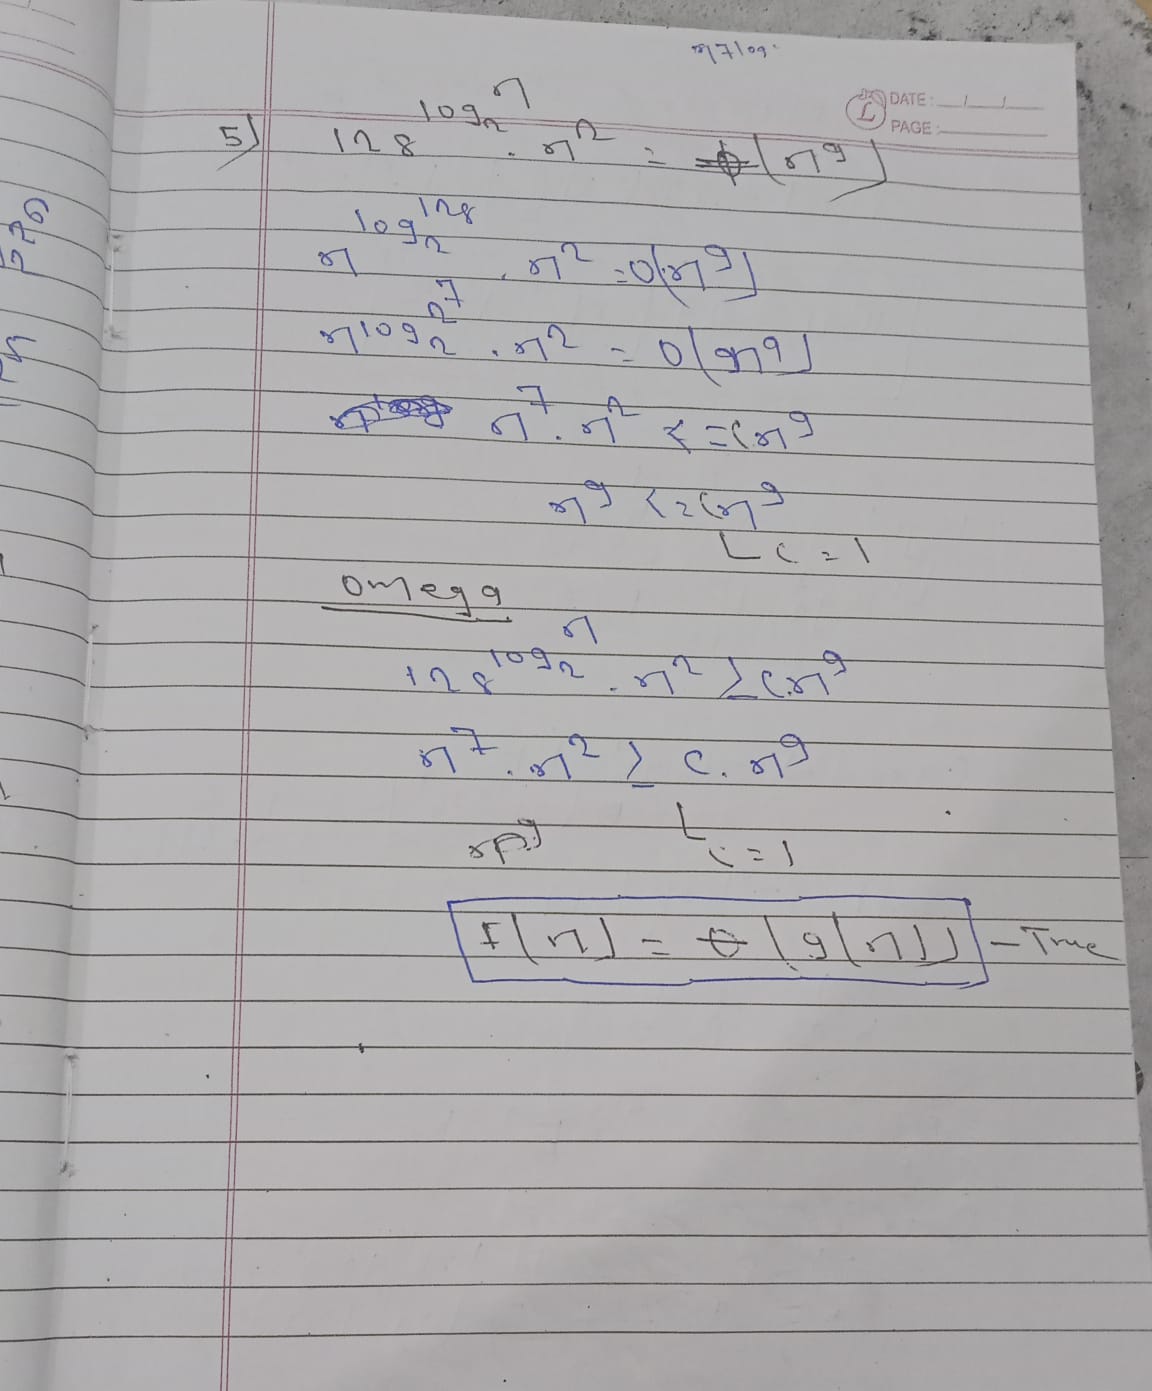 n7log.
DATE: __/__/__
PAGE:
5) 128^log₂^n . n^2 = θ(n^9)
n^log₂^128 . n^2 = O(n^9)
n^log₂^2^7 . n^2 = O(n^9)
n^7 . n^2 <= c n^9
n^9 <= c n^9
c = 1
omega
128^log₂^n . n^2 ≥ c.n^9
n^7 . n^2 ≥ c. n^9
n^9 c = 1
f(n) = θ(g(n)) - True